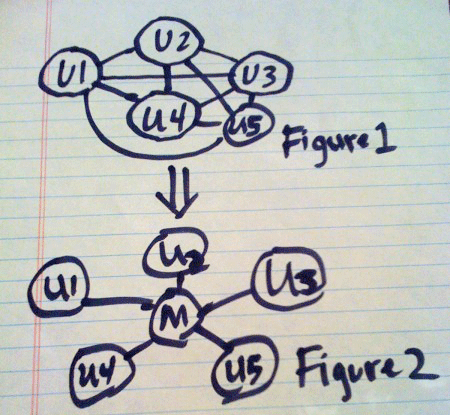 U2
U1
U3
U4
U5
Figure 1
U2
U1
U3
M
U4
U5
Figure 2